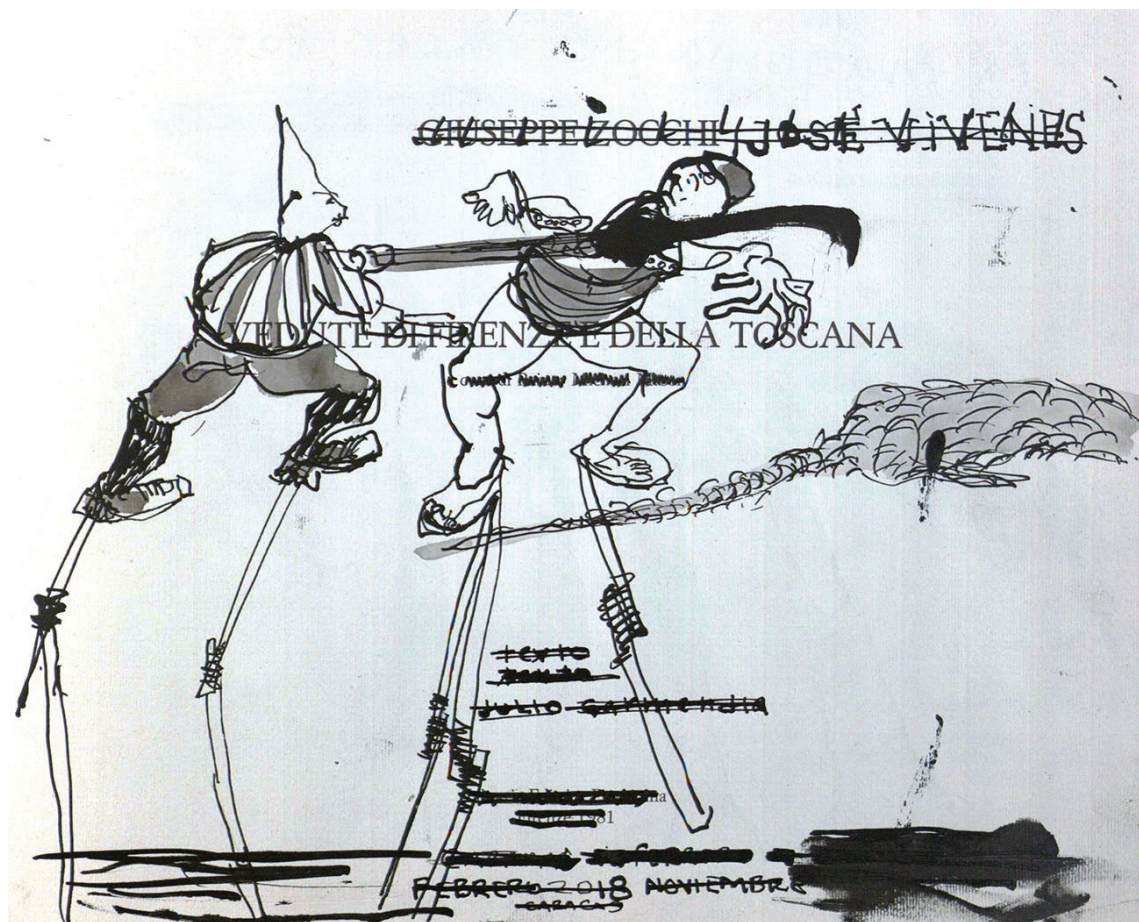 GIUSEPPE ZOCCHI Y JOSÉ VIVENES
VEDUTE DI FIRENZE E DELLA TOSCANA
a cura di
TEXTO
JULIO GARMENDIA
1981
FEBRERO 2018 NOVIEMBRE
CARACAS